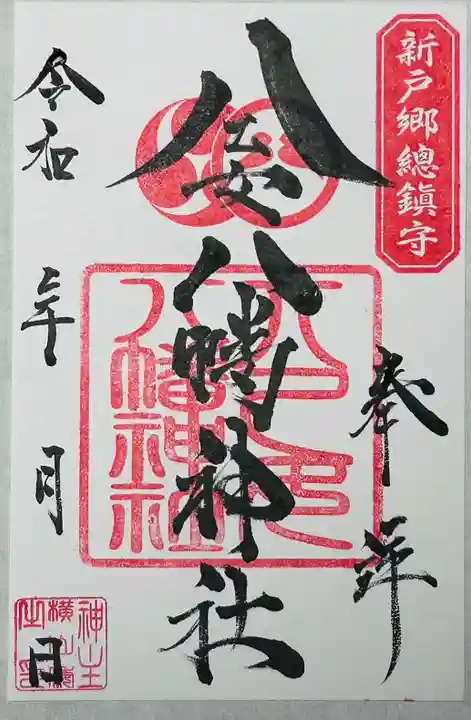 新戸郷總鎮守
奉拝
八幡神社
八幡神社
令和 年 月 日
神主